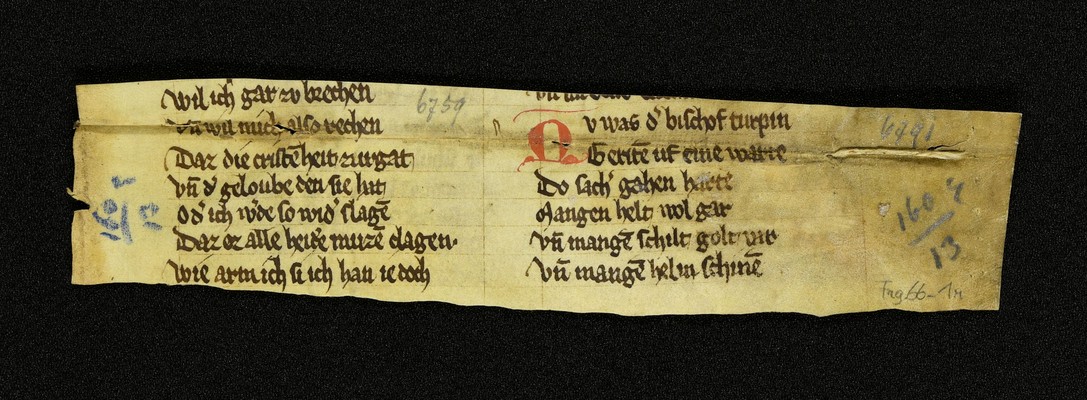 Wil ich gar zv brechen
6759
vn̄ wil mich also rechen
Daz die cristēheit zurgat
vn̄ d' geloube den sie hat
Od' ich w'de so wid' slagē
Daz ez alle heidē mvzē clagen·
Wie arm ich si ich han ie doch
Nv was d' bischof turpin
6791
Geritē uf eine warte
Do sach' gahen harte
Mangen helt wol gar
Vn̄ mangē schilt golt var
Vn̄ mangē helm schinē
160
13
160
13
Frg. 66-1r